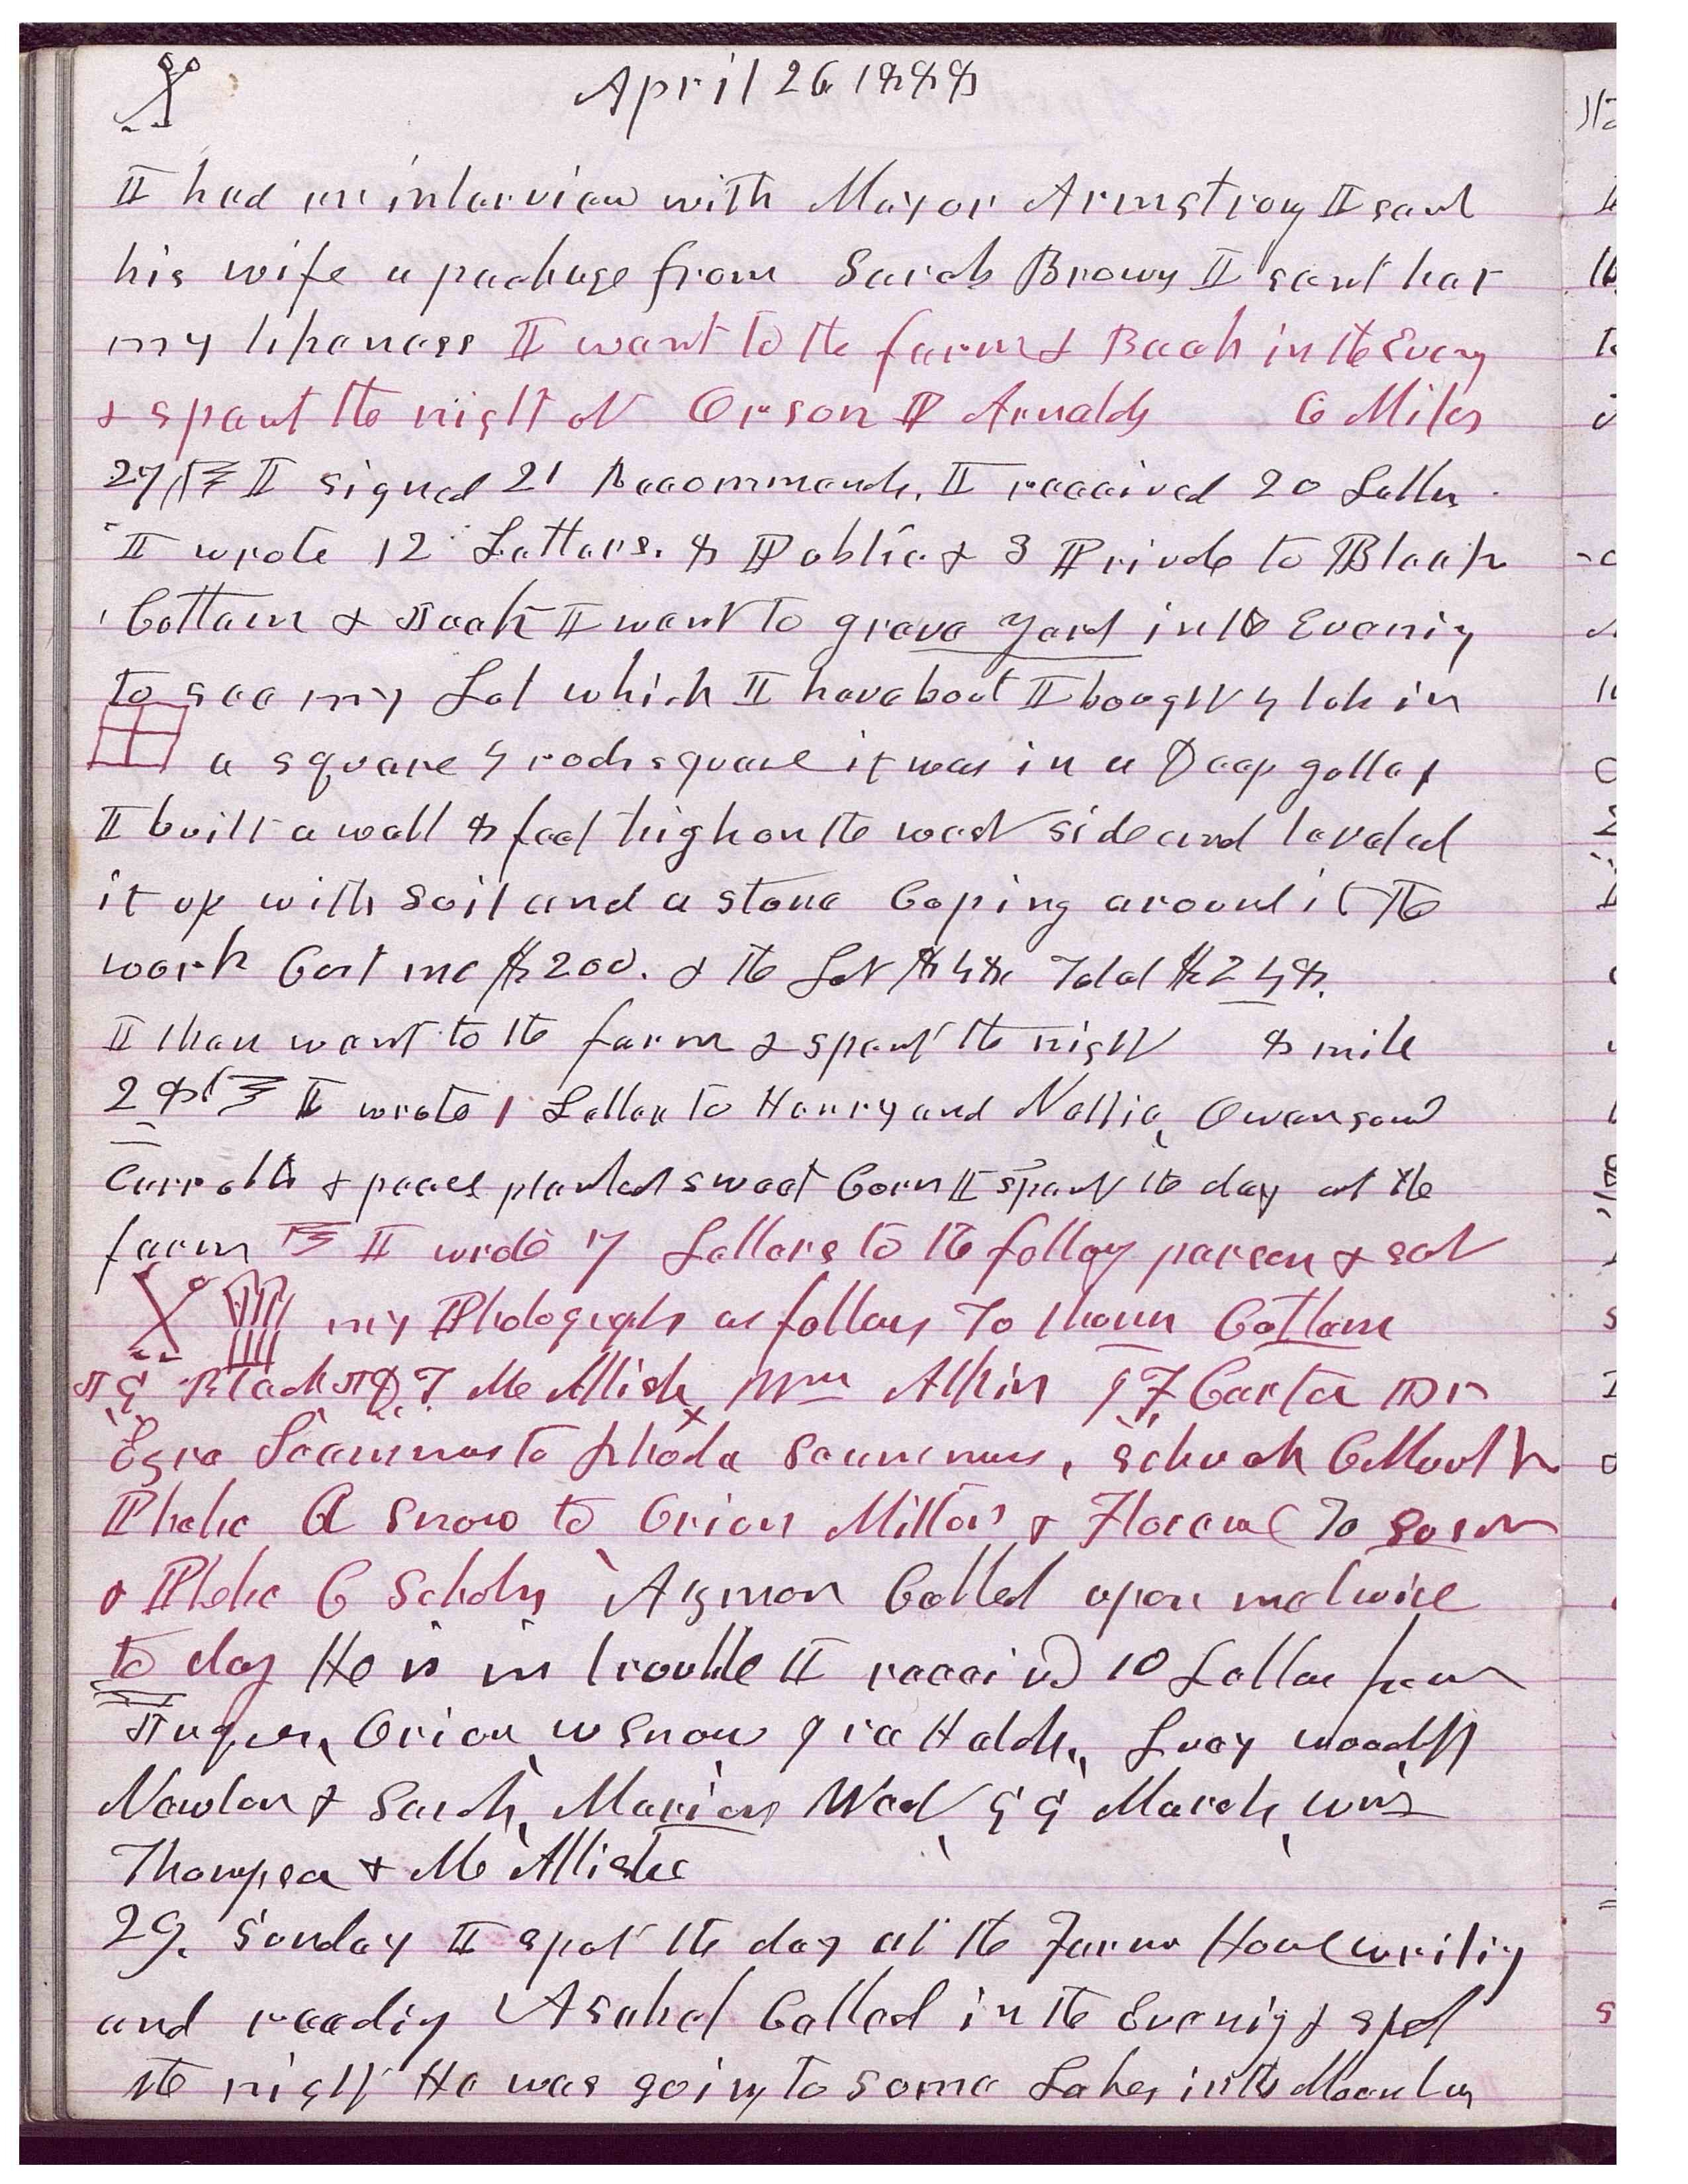 April 26 1888
I had an interview with Mayor Armstrong I sent
his wife a package from Sarah Brown I sent her
my likeness I went to the farm & Back in the Eveng
& spent the night at Orson P Arnolds 6 Miles
27 I signed 21 Recommends. I received 20 Letters
I wrote 12 Letters. 8 Public & 3 Private to Bleak
Cottam & I went to grave yard in the Evening
to see my Lot which I have bout I bought 4 lots in
a square 4 rods square it was in a Deep golley
I built a wall 8 feet high on the west side and leveled
it up with soil and a stone Coping around it The
work Cost me $200. & the Lot $48 Total $248.
I then went to the farm & spent the night 8 mile
28 I wrote 1 Letter to Henry and Nellie, Owen sowd
Carrotts & peaes planted sweet Corn I spent the day at the
farm I wrote 7 Letters to the follog person & sent
my Photographs as follows To Thomas Cottam
J G Bleak J D T McAllister Wm Atkin Carter Dr
Ezra to Rhoda
Phebe A Snow to Orion Miltons & Florence To Susan
& Phebe C Scholes Azmon Called upon me twice
to day He is in trouble I receivd 10 Letters from
Orion W Snow Hatch, Lucy Woodruff
Newton & Sarah, Marion March, Wm
Thompson & McAllister
29. Sunday I spet the day at the Farm House writing
and reading Asahel Called in the Evenig & spet
the night He was going to some Lakes in the Mountns